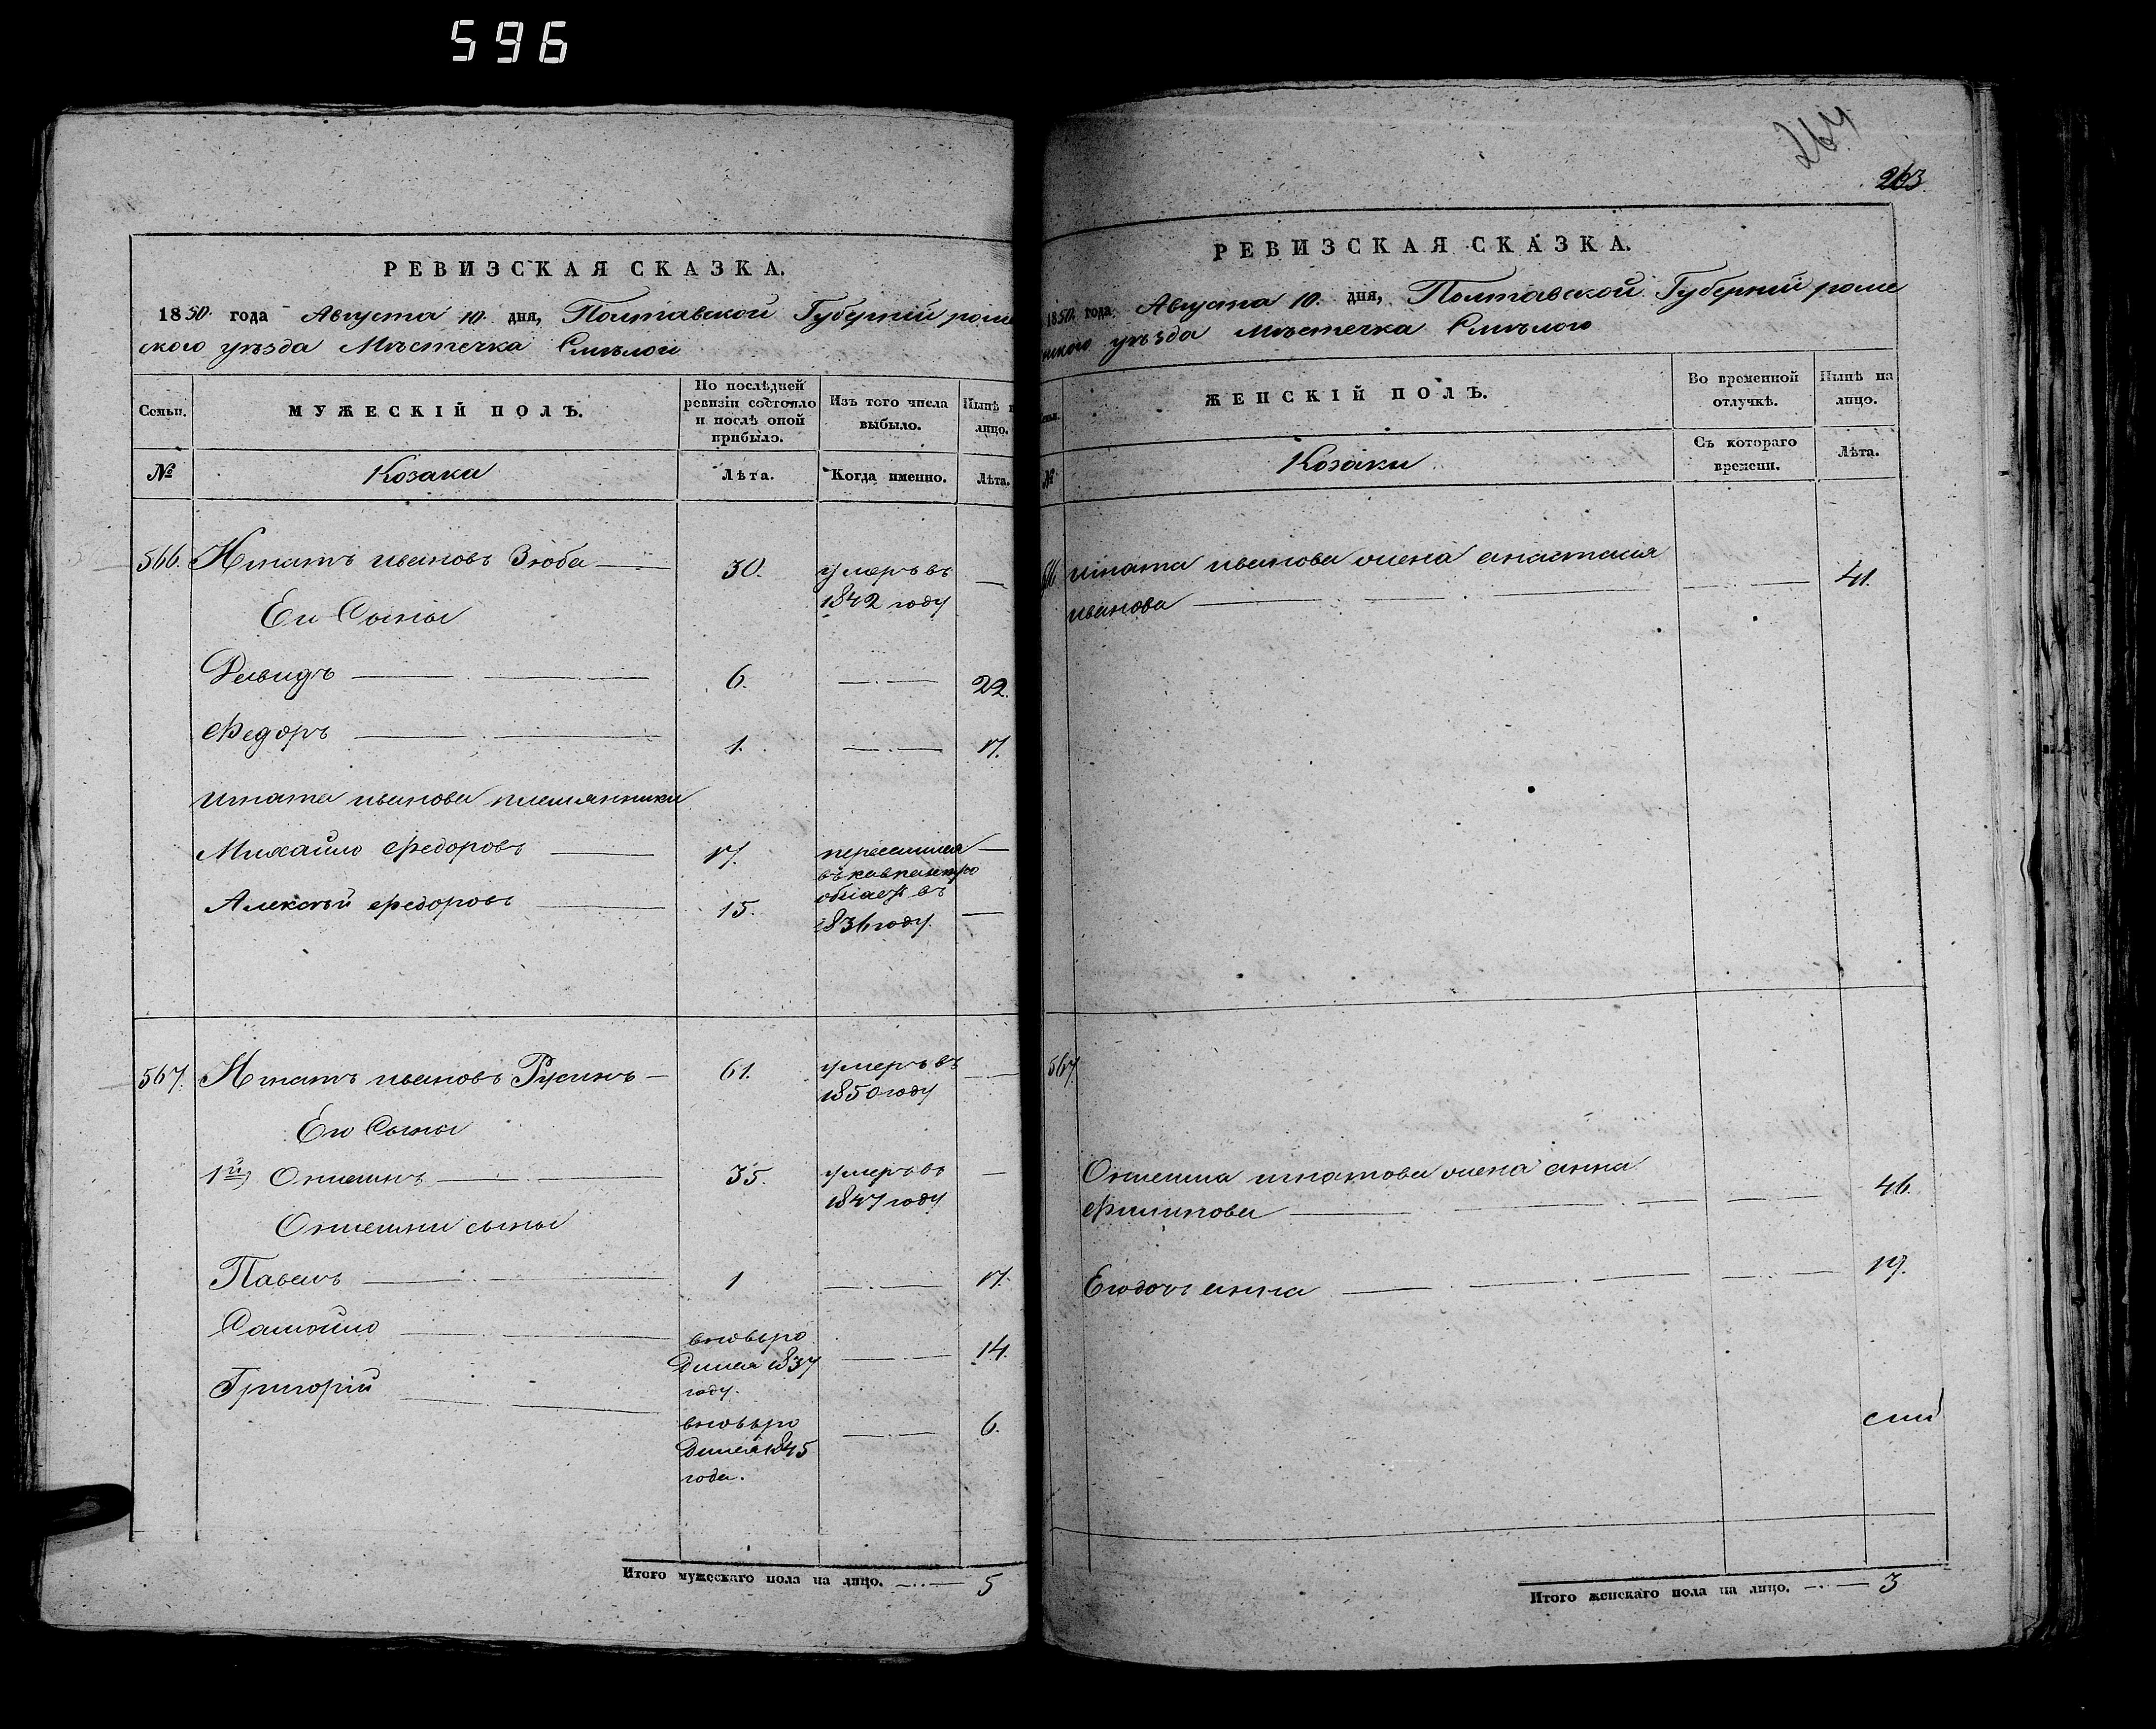 596
РЕВИЗСКАЯ СКАЗКА.
1850. года Августа 10. дня, Полтавской Губерній роме
ского уѣзда Мѣстечка Смѣлого
Семьи.
МУЖЕСКІЙ ПОЛЪ.
По послѣдней ревизіи состояло и послѣ оной прибыло.
Изъ того числа выбыло.
Нынѣ на лицо.
№
Козаки
Лѣта.
Когда именно.
Лѣта.
566. Игнатъ ивановъ Зюба 30. умеръ въ 1842 году
Его Сыны
Давидъ 6. 22.
Федоръ 1. 17.
игната иванова племянники
Михайло федоровъ 17. переселился
Алексѣй федоровъ 15. въ кавказкую область въ 1836 году.
567. Игнатъ ивановъ Русинъ 61. умеръ въ 1850 году
Его Сыны
1й) Онисимъ 35. умеръ въ 1847 году
Онисима сыны
Павелъ 1 17.
Самойло вновьро дился 1837 году. 14.
Григорій вновьро дился 1845 года. 6.
Итого мужескаго пола на лицо. 5
264
263
РЕВИЗСКАЯ СКАЗКА.
1850. года Августа 10. дня, Полтавской Губерній роме
нского уѣзда мѣстечка Смѣлого
Семьи.
ЖЕНСКІЙ ПОЛЪ.
Во временной отлучкѣ.
Нынѣ на лицо.
№
Козаки
Съ котораго времени.
Лѣта.
566 игната иванова жена анастасия 41.
иванова
567.
Онисима игнатова жена анна 46.
филипова
Егодочъ анна 19.
Итого женскаго пола на лицо. 3